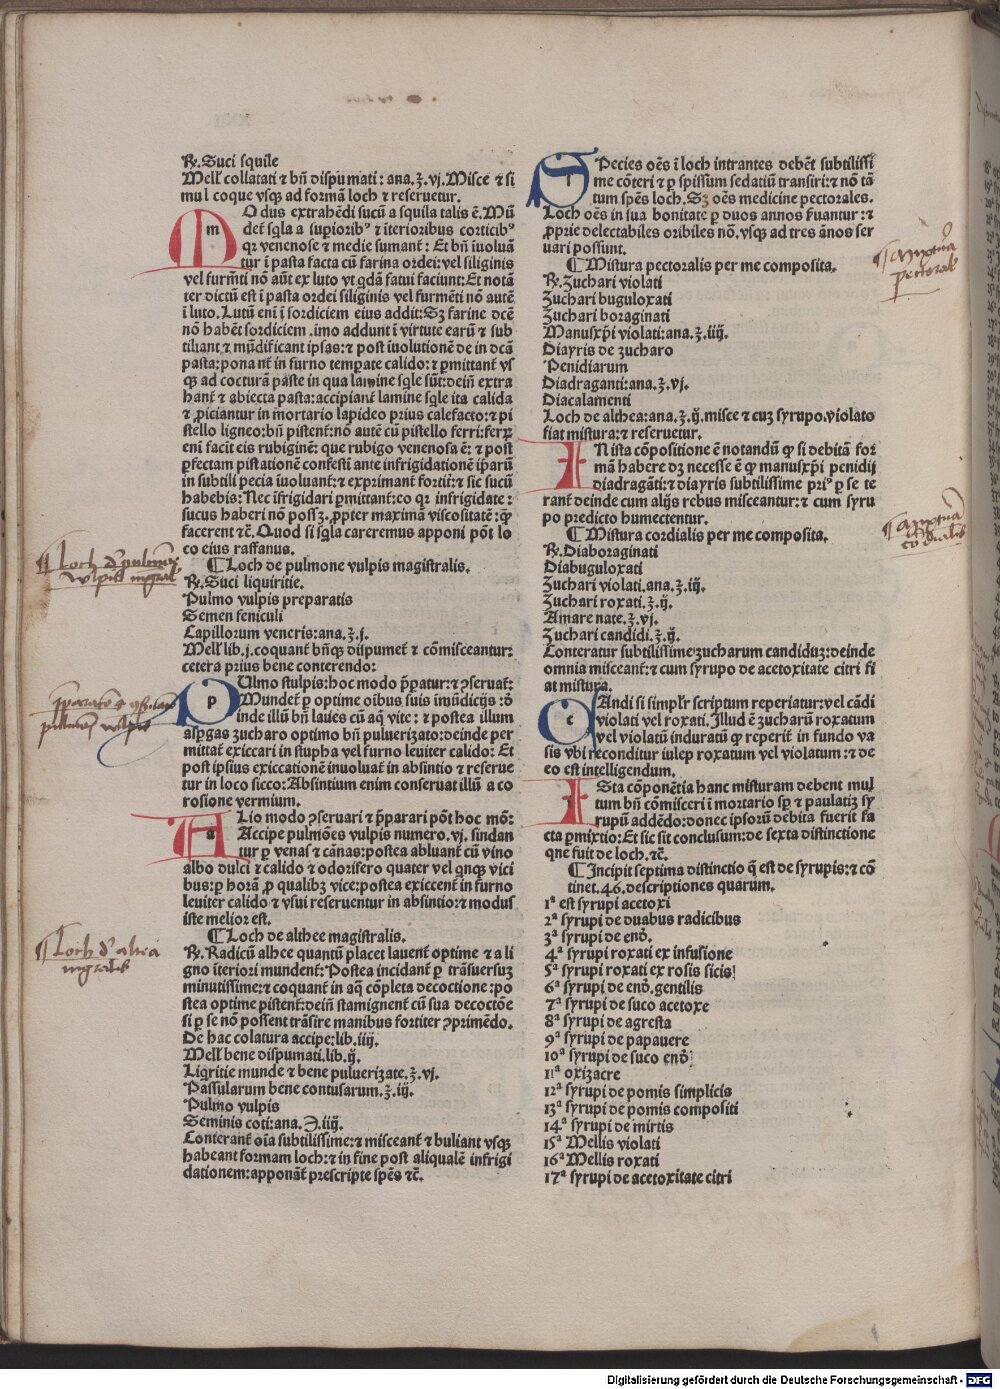 ℞. Suci squile
Mell̃ collatati ⁊ bñ dispumati: ana.ʒ.vj. Misce ⁊ si
mul coque vsqꝫ ad formā loch ⁊ reseruetur.
MOdus extrahēdi sucū a squila talis ē. Mū
det̃ sq̃la a supiorib⁹ ⁊ īterioribus corticib⁹
qꝛ venenose ⁊ medie sumant̃: Et bñ īuoluā
tur ī pasta facta cū farina ordei: vel siliginis
vel furm̃ti nō aūt ex luto vt q̄dā fatui faciunt: Et notā
ter dictū est ī pasta ordei siliginis vel furmēti nō autē
ī luto. Lutū enī ī sordiciem eius addit: Sꝫ farine dcē
nō habēt sordiciem. imo addunt ī virtute earū ⁊ sub
tiliant ⁊ mūdificant ipsas: ⁊ post īuolutionē de in dcā
pasta: ponant̃ in furno temꝑate calido: ⁊ ꝑmittant̃ vs
qꝫ ad cocturā paste in qua lamine sq̃le sūt: deiñ extra
hant̃ ⁊ abiecta pasta: accipiant̃ lamine sq̃le ita calida
⁊ ꝓiciantur in mortario lapideo prius calefacto: ⁊ pi
stello ligneo: bñ pistent̃: nō autē cū pistello ferri: ferꝝ
enī facit eis rubiginē: que rubigo venenosa ē: ⁊ post
ꝑfectam pistationē confestī ante infrigidationē ip̄arū
in subtili pecia īuoluant̃: ⁊ exprimant̃ fortit̃: ⁊ sic sucū
habebis: Nec īfrigidari ꝑmittant̃: eo qꝛ infrigidate:
sucus haberi nō possꝫ. ꝓpter maximā viscositatē: qꝫ
facerent ⁊c̃. Quod si sq̃la careremus apponi pōt lo
co eius raffanus.
¶ Loch de pulmone vulpis magistralis.
℞. Suci liquiritie.
Pulmo vulpis preparatis
Semen feniculi
Capillorum veneris: ana.ʒ.j.
Mell̃ lib.j. coquant̃ bñqꝫ dispumet̃ ⁊ cōmisceantur:
cetera prius bene conterendo:
PUlmo vulpis: hoc modo p̄ꝑatur: ⁊ ꝯseruat̃:
Mundet̃ ꝑ optime oībus suis īmūdicijs: d̄
inde illū bñ laues cū aq̄ vite: ⁊ postea illum
asp̄gas zucharo optimo bñ puluerizato: deinde per
mittat̃ exiccari in stupha vel furno leuiter calido: Et
post ipsius exiccationē inuoluat̃ in absintio ⁊ reserue
tur in loco sicco: Absintium enim conseruat illū a co
rosione vermium.
ALio modo ꝯseruari ⁊ p̄parari pōt hoc mō:
Accipe pulmōes vulpis numero. vj. sindan
tur ꝑ venas ⁊ cānas: postea abluant̃ cū vino
albo dulci ⁊ calido ⁊ odorifero quater vel qnqꝫ vici
bus: ꝑ horā ꝓ qualibꝫ vice: postea exiccent̃ in furno
leuiter calido ⁊ vsui reseruentur in absintio: ⁊ modus
iste melior est.
¶ Loch de althee magistralis.
℞. Radicū alhee quantū placet lauent̃ optime ⁊ a li
gno īteriori mundent̃: Postea incidant̃ ꝑ trāsuersuꝫ
minutissime: ⁊ coquant̃ in aq̄ cōpleta decoctione: po
stea optime pistent̃: deiñ stamignent̃ cū sua decoctōe
si ꝑ se nō possent trāsire manibus fortiter ꝯprimēdo.
De hac colatura accipe: lib. iiij.
Mell̃ bene dispumati. lib. ij.
Liq̃ritie munde ⁊ bene puluerizate.ʒ.vj.
Passularum bene contusarum.ʒ.iij.
Pulmo vulpis
Seminis coti: ana.℈.iiij.
Conterant̃ oīa subtilissime: ⁊ misceant̃ ⁊ buliant vsqꝫ
habeant formam loch: ⁊ in fine post aliqualē infrigi
dationem: apponāt̃ prescripte spēs ⁊c̃.
SPecies oēs ī loch intrantes debēt subtilissi
me cōteri ⁊ ꝑ spissum sedatiū transiri: ⁊ nō tā
tum spēs loch. Sꝫ oēs medicine pectorales.
Loch oēs in sua bonitate ꝑ duos annos ẜuantur: ⁊
ꝓprie delectabiles oribiles nō. vsqꝫ ad tres ānos ser
uari possunt.
¶ Mistura pectoralis per me composita.
℞. Zuchari violati
Zuchari buguloxati
Zuchari boraginati
Manusxp̄i violati: ana.ʒ.iiij.
Diayris de zucharo
Penidiarum
Diadraganti: ana.ʒ.vj.
Diacalamenti
Loch de althea: ana.ʒ.ij. misce ⁊ cuꝫ syrupo. violato
fiat mistura: ⁊ reseruetur.
IN ista cōpositione ē notandū ꝙ si debitā for
mā habere dꝫ necesse ē ꝙ manusxp̄i penidij
diadragāti: ⁊ diayris subtilissime pri⁹ ꝑ se te
rant̃ deinde cum alijs rebus misceantur: ⁊ cum syru
po predicto humectentur.
¶ Mistura cordialis per me composita.
℞. Diaboraginati
Diabuguloxati
Zuchari violati. ana.ʒ.iij.
Zuchari roxati.ʒ.ij.
Amare nate.ʒ.vj.
Zuchari candidi.ʒ.ij.
Conteratur subtilissime: zucharum candiduꝫ: deinde
omnia misceant̃: ⁊ cum syrupo de acetoxitate citri fi
at mistura.
CAndi si simplr̃ scriptum reperiatur: vel cādi
violati vel roxati. Illud ē zucharū roxatum
vel violatū induratū ꝙ reperit̃ in fundo va
sis vbi reconditur iulep roxatum vel violatum: ⁊ de
eo est intelligendum.
ISta cōponētia hanc misturam debent mul
tum bñ cōmisceri ī mortario sp̄ ⁊ paulatiꝫ sy
rupū addēdo: donec ipsorū debita fuerit fa
cta ꝑmixtio: Et sic sit conclusum: de sexta distinctione
que fuit de loch. ⁊c̃.
¶ Incipit septima distinctio q̄ est de syrupis: ⁊ cō
tinet. 46. descriptiones quarum.
1ª est syrupi acetoxi
2ª syrupi de duabus radicibus
3ª syrupi de enđ.
4ª syrupi roxati ex infusione
5ª syrupi roxati ex rosis sicis!
6ª syrupi de enđ. gentilis
7ª syrupi de suco acetoxe
8ª syrupi de agresta
9ª syrupi de papauere
10ª syrupi de suco enđ
11ª oxizacre
12ª syrupi de pomis simplicis
13ª syrupi de pomis compositi
14ª syrupi de mirtis
15ª Mellis violati
16ª Mellis roxati
17ª syrupi de acetoxitate citri
Digitalisierung gefördert durch die Deutsche Forschungsgemeinschaft - DFG